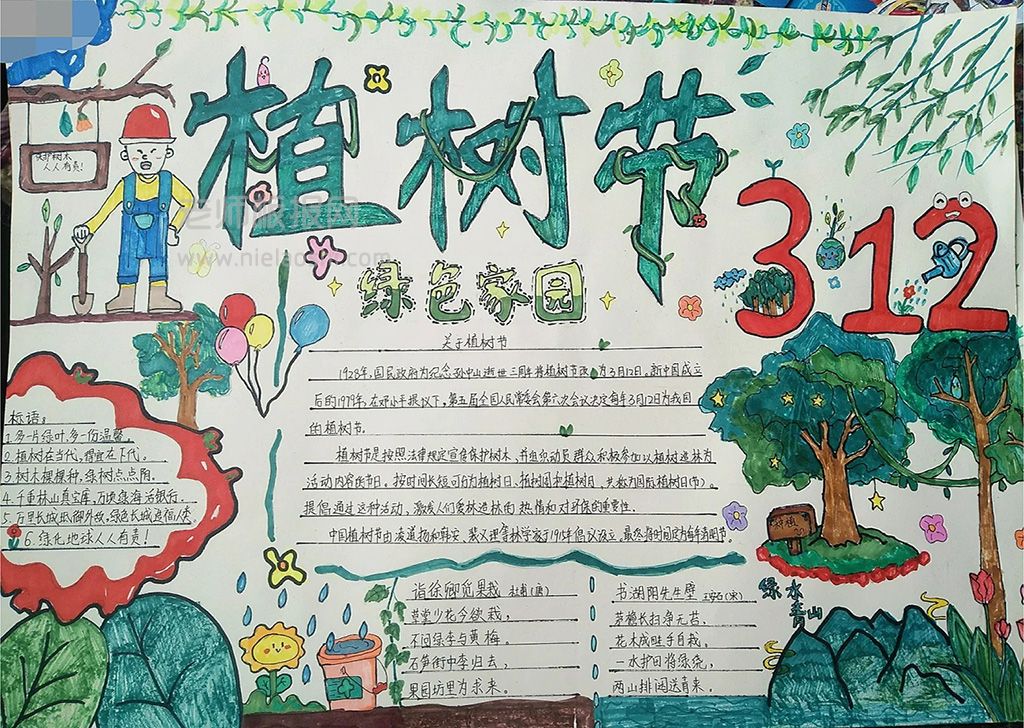 植树节
312
绿色家园
保护树木
人人有责!
老师服报网
www.nielao
关于植树节
1928年,国民政府为纪念孙中山逝世三周年将植树节改为3月12日。新中国成立
后的1979年,在邓小平提议下,第五届全国人民常委会第六次会议决定每年3月12日为我国
的植树节.
植树节是按照法律规定宣传保护树木,并组织动员群众积极参加以植树造林为
活动内容的节日。按时间长短可分为植树日、植树周和植树月,共称为国际植树日(节)。
提倡通过这种活动,激发人们爱林造林的热情和对环保的重要性.
中国植树节由凌道扬和韩安、裴义理等林学家于1915年倡议设立,最终将时间定为每年清明节。
标语:
1.多一片绿叶,多一份温馨。
2.植树在当代,得益在下代。
3.树木棵棵种,绿树点点阴。
4.千重林山真宝库,万顷绿海活银行.
5.万里长城抵御外敌,绿色长城造福人类.
6.绿化地球人人有责!
诣徐卿觅果栽 杜甫(唐)
草堂少花今欲栽,
不问绿李与黄梅。
石笋街中李归去,
果园坊里为求来。
书湖阴先生壁 王安石(宋)
茅檐长扫净无苔.
花木成畦手自栽。
一水护田将绿绕,
两山排闼送青来.
绿水
青山